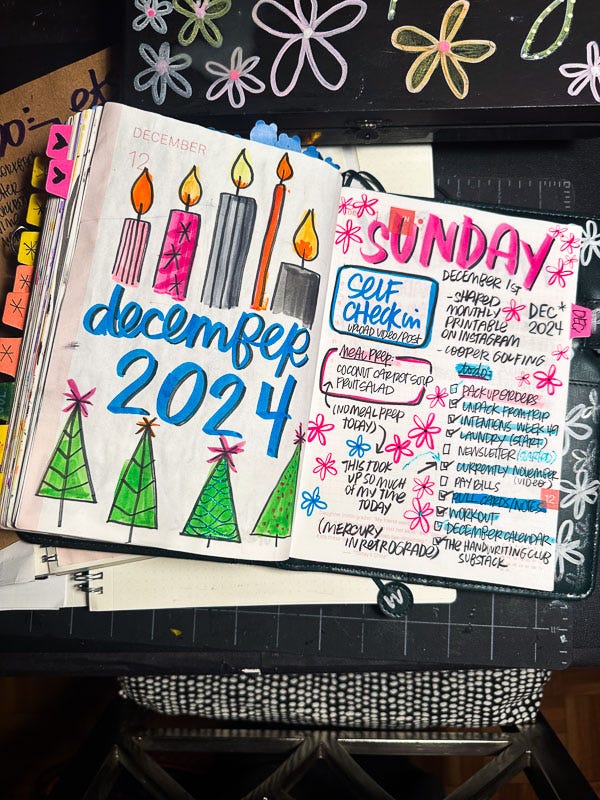 DECEMBER
12
december
2024
SUNDAY
SELF
CHECK in
UPLOAD VIDEO/POST
MEAL PREP:
COCONUT CARROT SOUP
FRUIT SALAD
(NO MEAL PREP
TODAY)
THIS TOOK
UP SO MUCH
OF MY TIME
TODAY
(MERCURY
IN RETROGRADE)
DECEMBER 1ST
- SHARED
MONTHLY
PRINTABLE
ON INSTAGRAM
- COOPER GOLFING
DEC*
2024
DEC
todo:
PACK UP ORDERS
UNPACK FROM TRIP
INTENTIONS WEEK 49
LAUNDRY (START)
NEWSLETTER (STARTED)
CURRENTLY NOVEMBER
(VIDEO)
PAY BILLS
PULL CARDS/NOTES
WORKOUT
DECEMBER CALENDAR
THE HANDWRITING CLUB
SUBSTACK
12